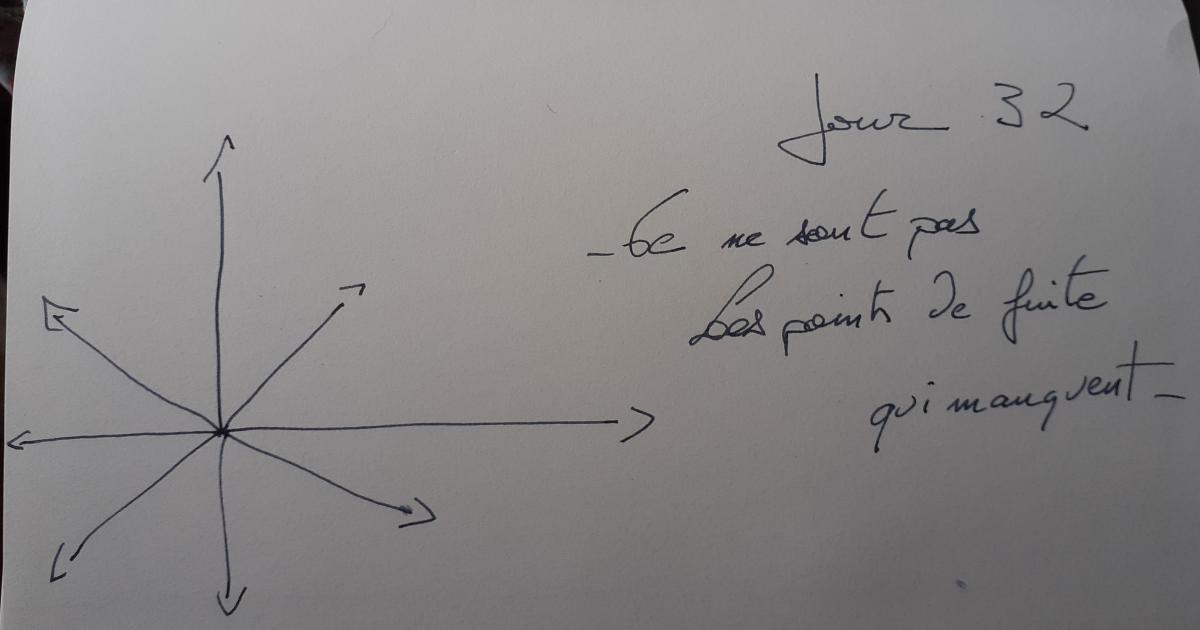 Jour 32
- Ce ne sont pas
Les points de fuite
qui manquent -